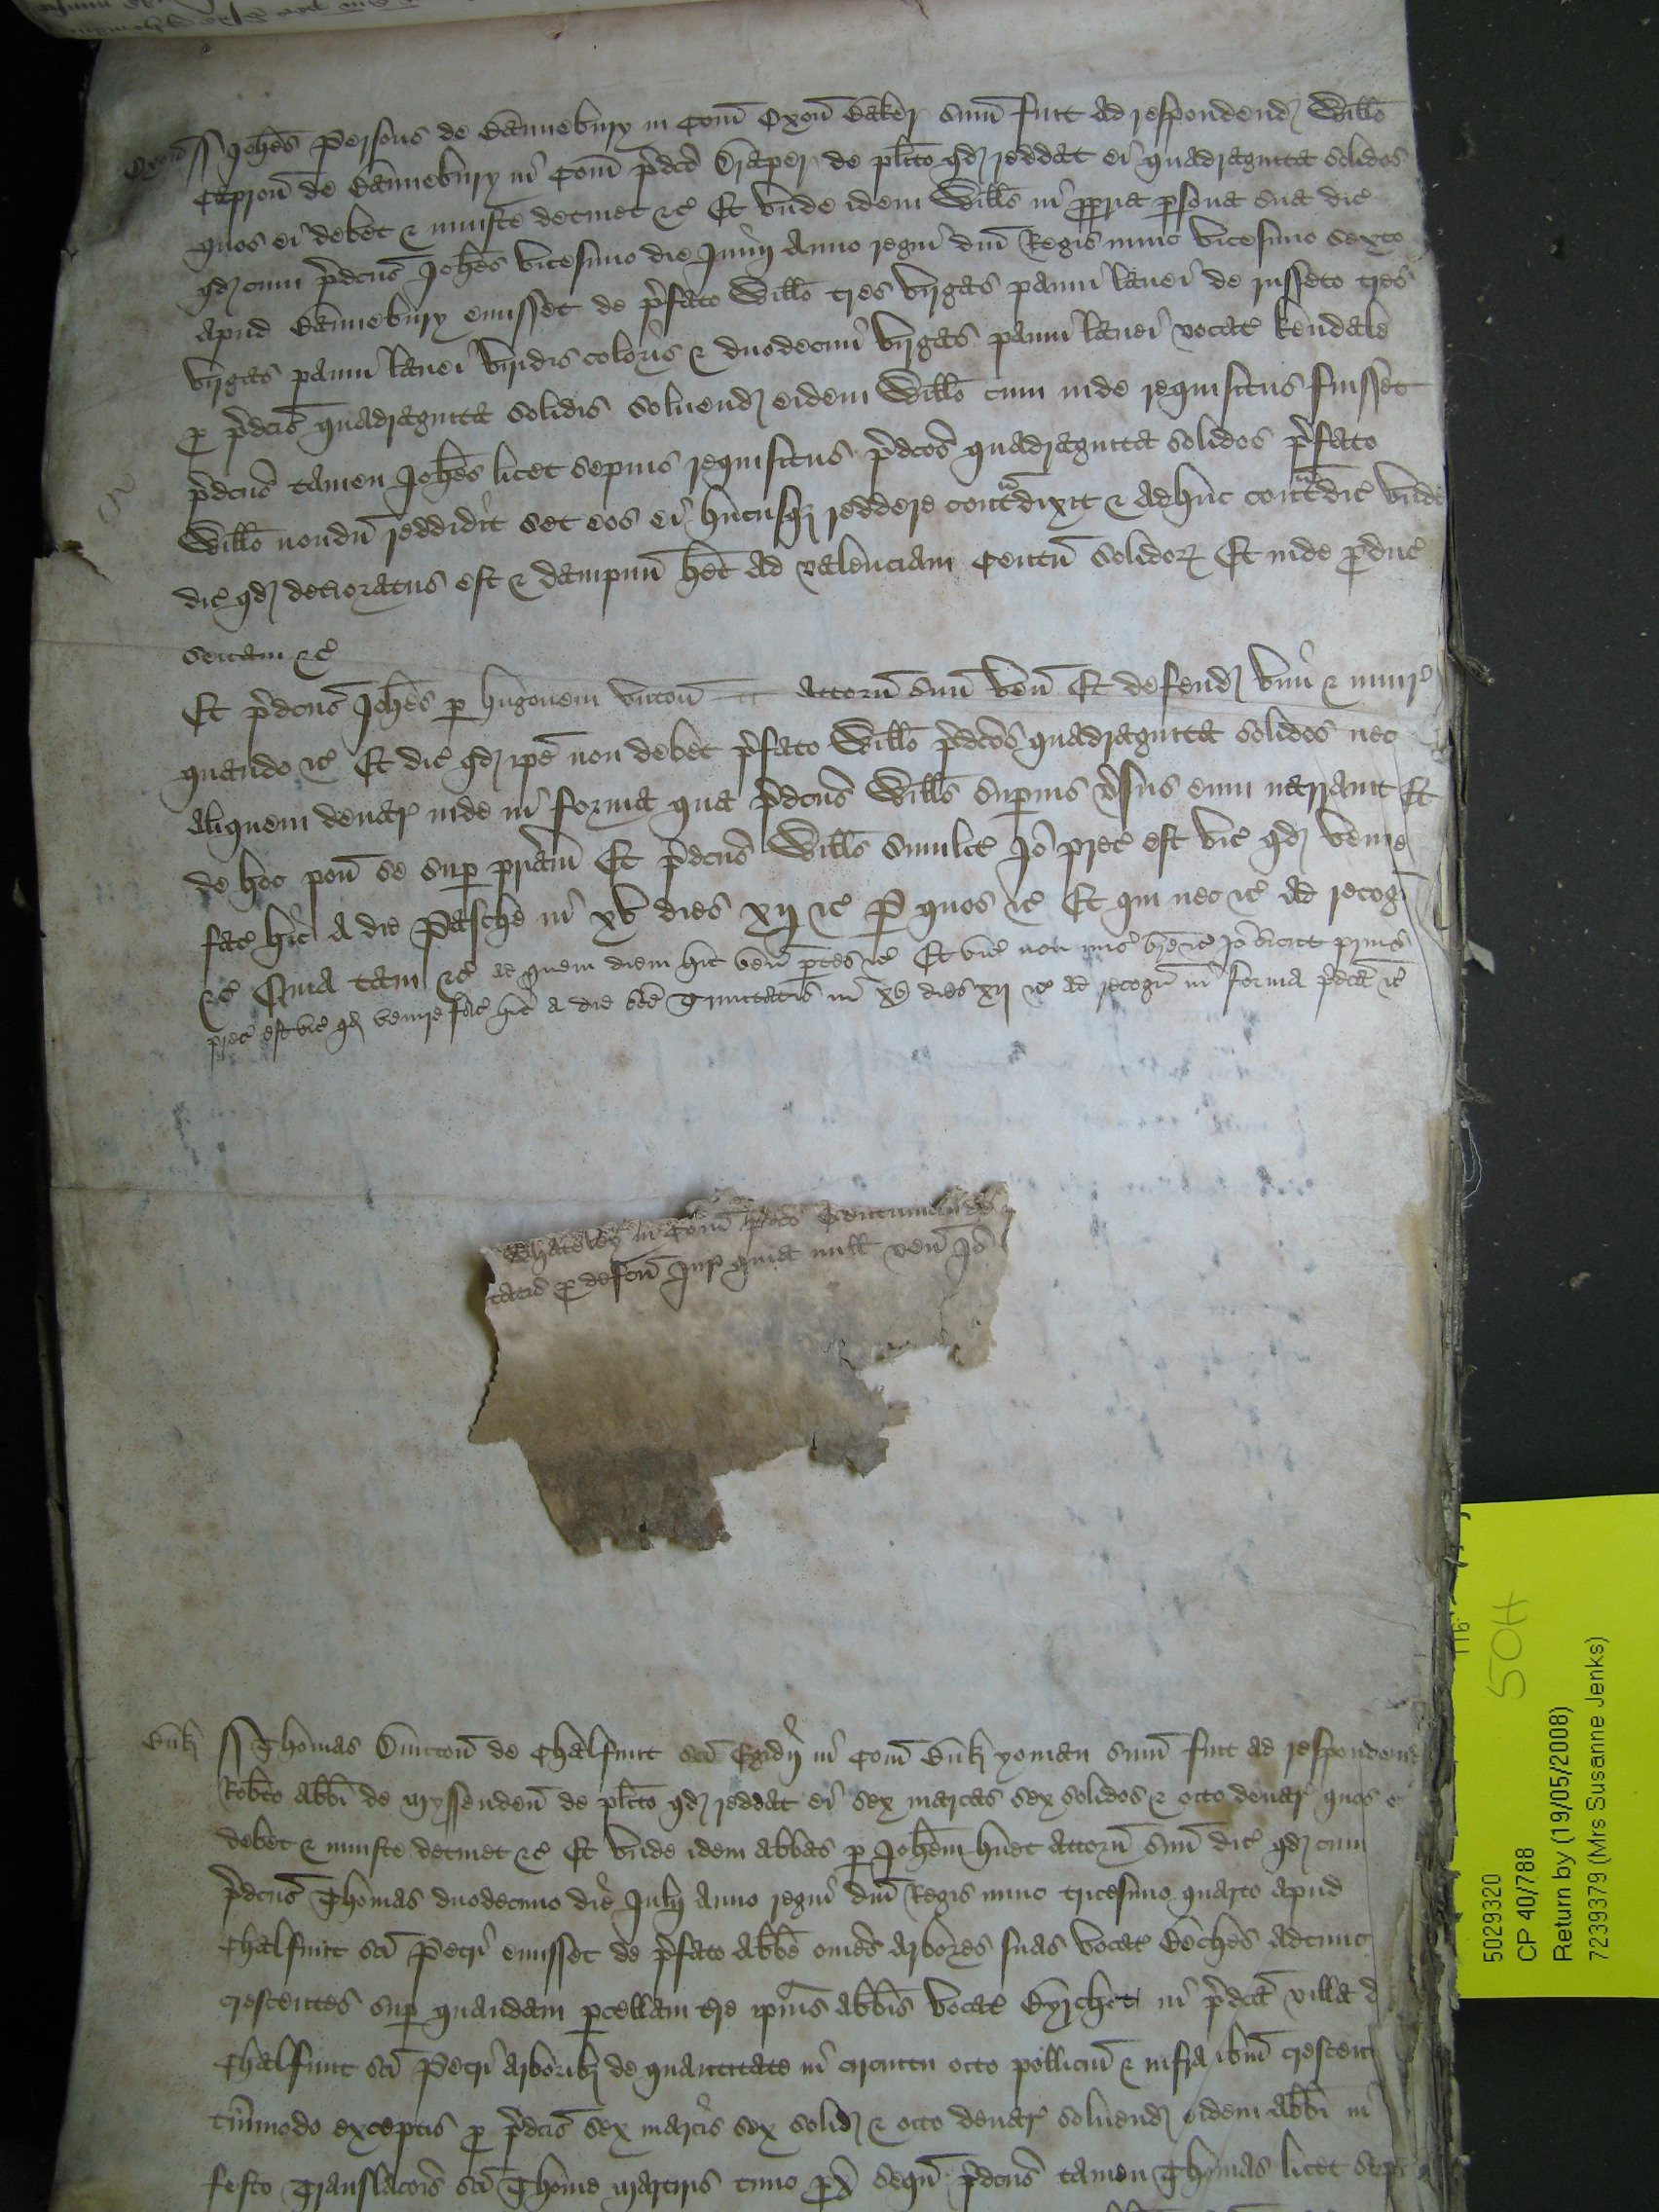 Oxon̄ Joh̄es Persons de Bannebury in Com̄ Oxon̄ Baker sum̄ fuit ad respondend Willo
Capron̄ de Bannebury in Com̄ p̄dc̄o Draper de pl̄ito qd reddat ei quadraginta solidos
quos ei debet & iniuste detinet &c̄ Et unde idem Wills in pp̄ria p̱sona sua dic̄
qd cum p̄dcus Joh̄es vicesimo die Junii Anno regni dn̄i Regis nunc vicesimo sexto
apud Bannebury emisset de p̄fato Willo tres virgas panni lanei de russeto tres
virgas panni lanei viridis coloris & duodecim virgas panni lanei vocat̄ kendale
p̱ p̄dcis quadraginta solidis soluend eidem Willo cum inde requisitus fuisset
p̄dcus tamen Joh̄es licet sepius requisitus p̄dcos quadraginta solidos p̄fato
Willo nondū reddidit set eos ei hucusq reddere cont̄dixit & adhuc cont̄dic̄ unde
dic̄ qd deterioratus est & dampnū h̄et ad valenciam Centū solidoꝝ Et inde p̄duc̄
sectam &c̄
Et p̄dcus Joh̄es p̱ hugonem unton̄ attorn̄ suū ven̄ Et defend vim & iniur̄
quando &c̄ Et dic̄ qd ip̄e non debet p̄fato Willo p̄dcos quadraginta solidos nec
aliquem denar̄ inde in forma qua p̄dcus Wills sup̱ius v̄sus eum narrauit Et
de hoc pon̄ se sup̱ pr̄iam Et p̄dcus Wills similit̄ Jō prec̄ est vic̄ qd venire
fac̄ hic a die Pasche in xv dies xij &c̄ P̱ quos &c̄ Et qui nec &c̄ ad recogn̄
&c̄ Quia tam &c̄ ad quem diem hic ven̄ p̱tes &c̄ Et vic̄ non mis̄ br̄e &c̄ Jō sicut prius
prec̄ est vic̄ qd venire fac̄ hic a die sc̄e Trinitatis in xv dies xij &c̄ ad recogn̄ in forma p̄dca &c̄
in Com̄ p̄dco
p̱ defc̄u Jur̄ quia null ven̄ Jō
Buk Thomas de Chalfunt sc̄i Egidij in Com̄ Buk yoman sum̄ fuit ad respondend
Rob̄to Abb̄i de Myssenden̄ de pl̄ito qd reddat ei sex marcas sex solidos & octo denar̄ quos e
debet & iniuste detinet &c̄ Et unde idem abbas p̱ Joh̄em huet attorn̄ suū dic̄ qd cum
p̄dcus Thomas duodecimo die Julij Anno regni dn̄i Regis nunc tricesimo quarto apud
Chalfunt sc̄i Petri emisset de p̄fato Abb̄e om̄es arbores suas vocat̄ Beches adtunc
crescentes sup̱ quandam p̱cellam t̄re ip̄ius Abb̄is vocat̄ in p̄dca villa d
Chalfunt sc̄i Petri arborib de quantitate in circuitu octo pollicū & infra ib̄m crescent
tm̄modo exceptis p̱ p̄dcis sex marcis sex solid & octo denar̄ soluend eidem Abb̄i in
festo Translac̄ois sc̄i Thome Martiris tunc px̄ seqū p̄dcus tamen Thomas licet sep̄
116
50H
5029320
CP 40/788
Return by (19/05/2008)
7239379 (Mrs Susanne Jenks)